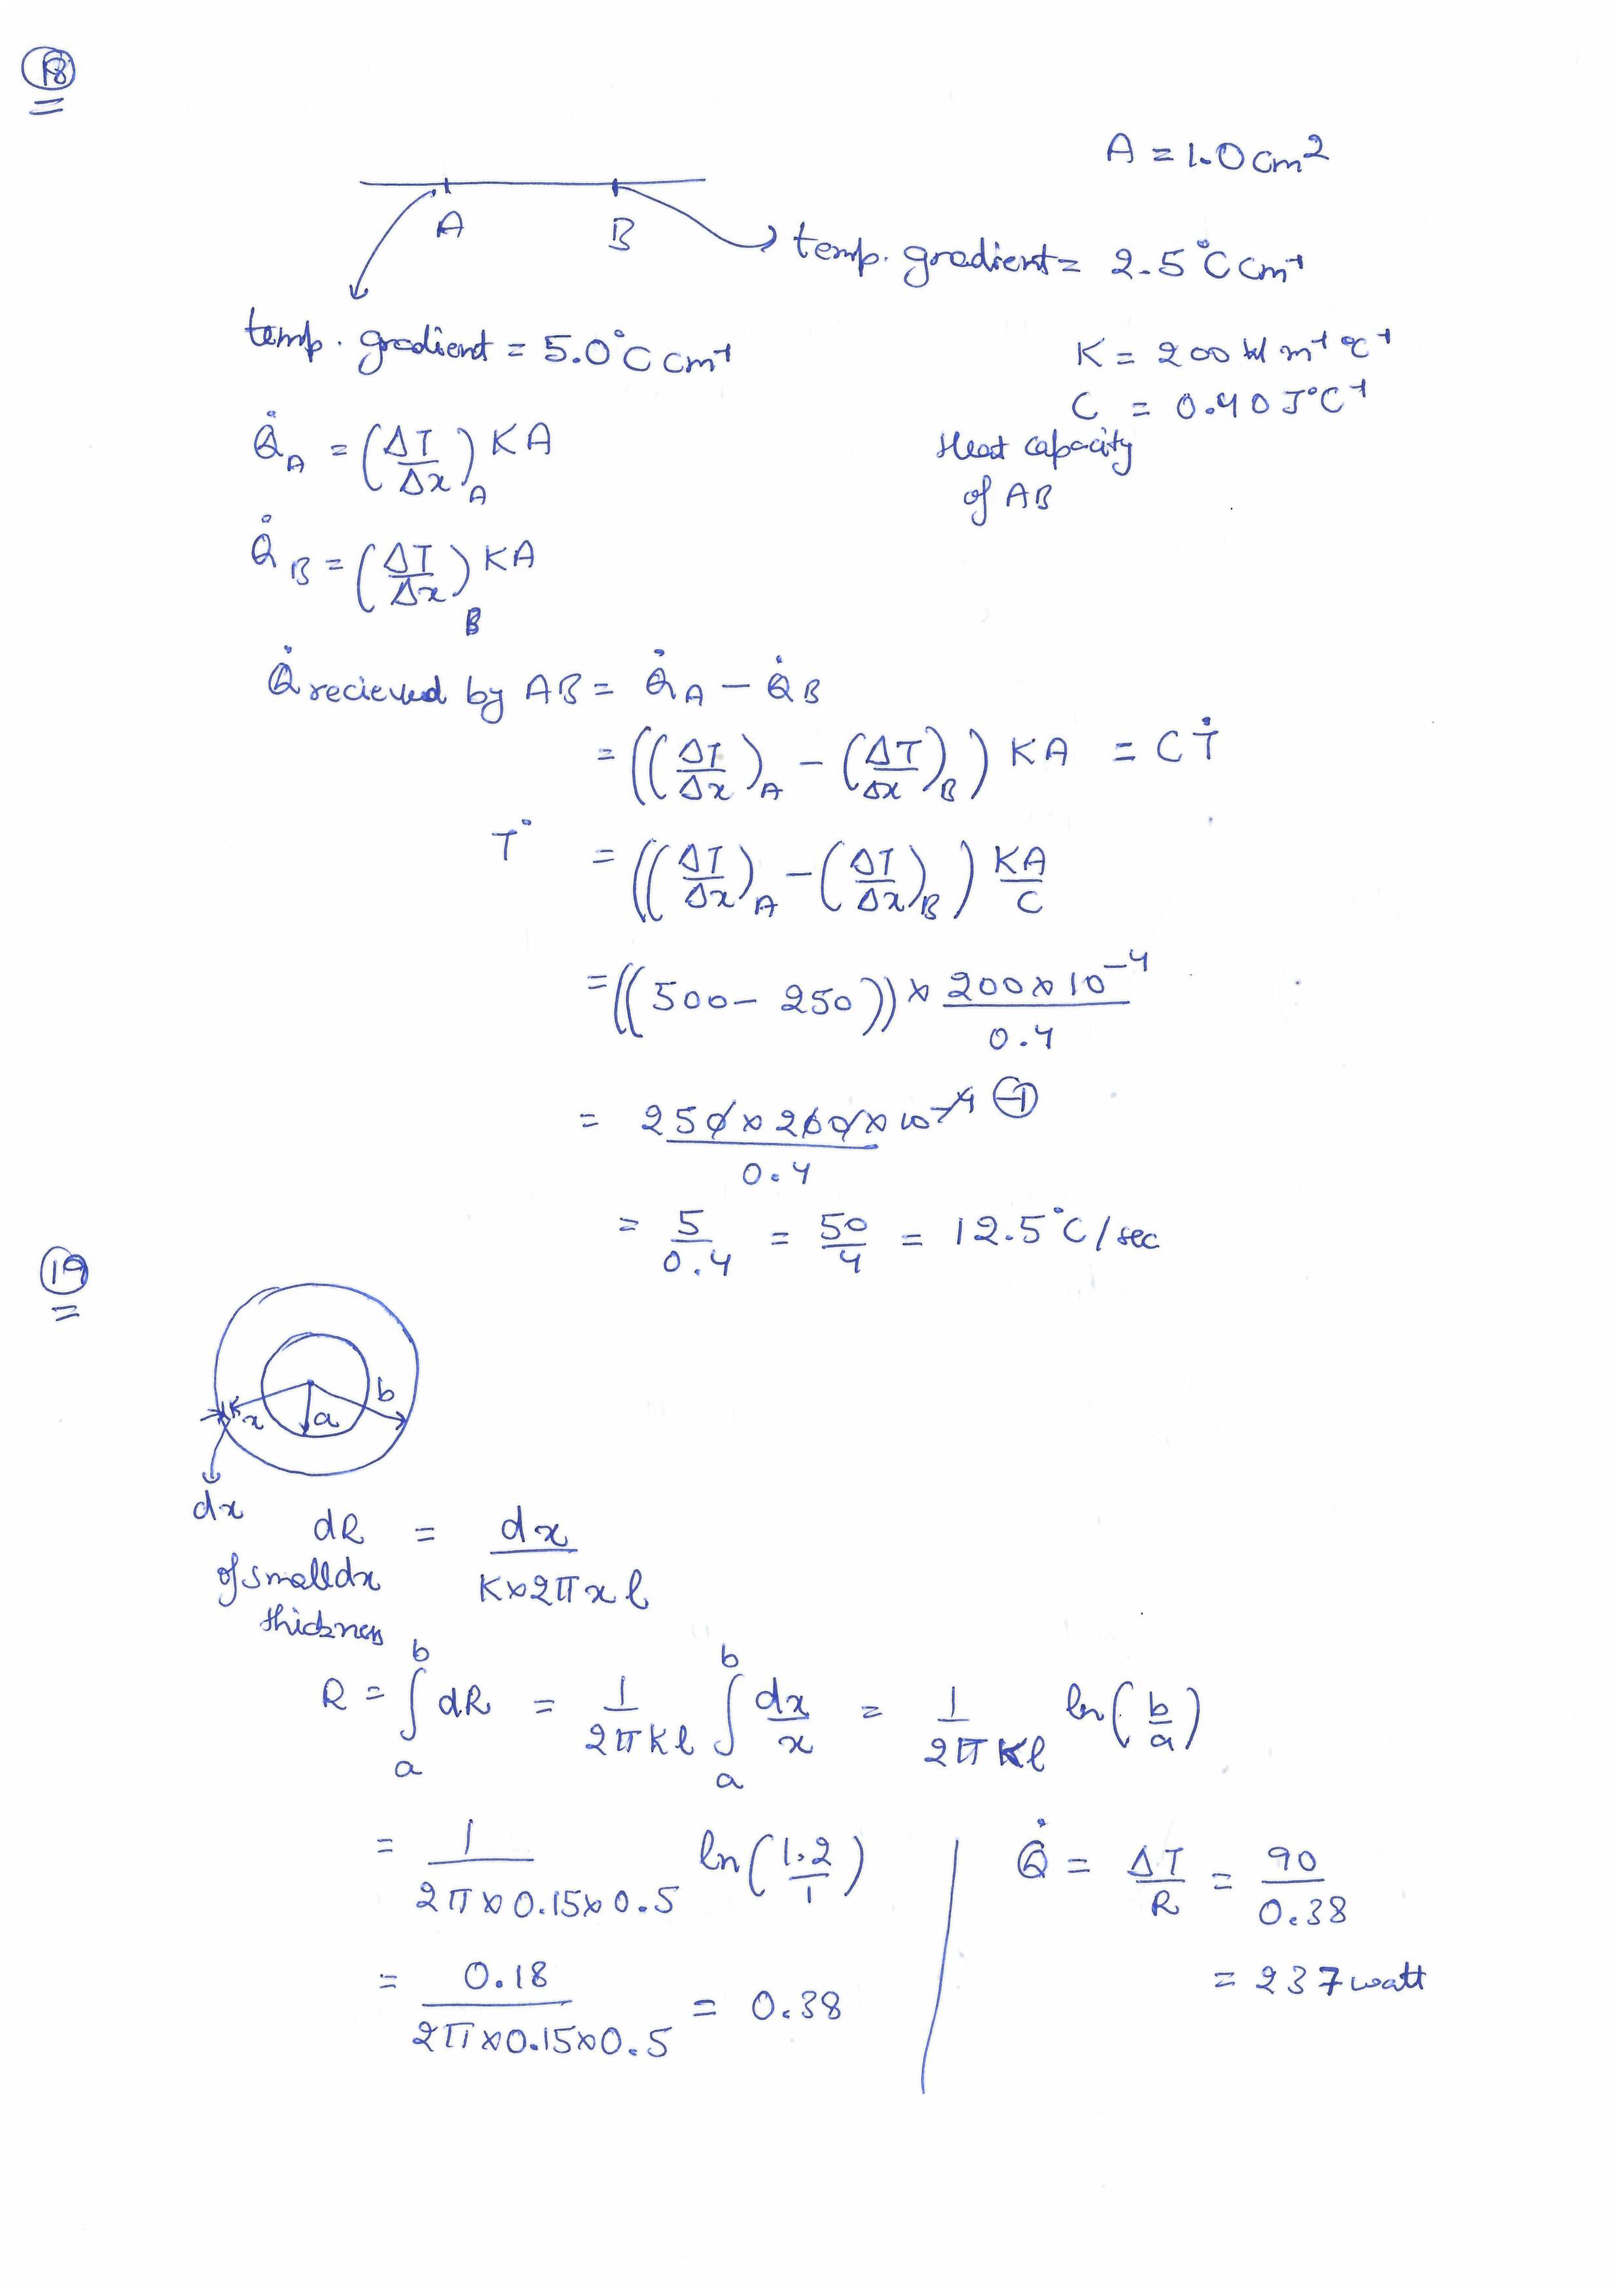 18
A = 1.0 cm²
A B
temp. gradient = 2.5°C cm⁻¹
temp. gradient = 5.0°C cm⁻¹
K = 200 W m⁻¹ °C⁻¹
C = 0.40 J°C⁻¹
Heat capacity
of AB
Q̇_A = (ΔT/Δx)_A KA
Q̇_B = (ΔT/Δx)_B KA
Q̇ recieved by AB = Q̇_A − Q̇_B
= ((ΔT/Δx)_A − (ΔT/Δx)_B) KA = CṪ
Ṫ = ((ΔT/Δx)_A − (ΔT/Δx)_B) KA/C
= ((500 − 250)) × 200 × 10⁻⁴ / 0.4
= 250 × 200 × 10⁻⁴ ⊖1 / 0.4
= 5/0.4 = 50/4 = 12.5°C/sec
19
b
x a
dx
dR = dx / K×2πxl
of small dx
thickness
R = ∫_a^b dR = 1/2πKl ∫_a^b dx/x = 1/2πKl ln(b/a)
= 1 / 2π×0.15×0.5 ln(1.2/1)
= 0.18 / 2π×0.15×0.5 = 0.38
Q̇ = ΔT/R = 90/0.38
= 237 watt